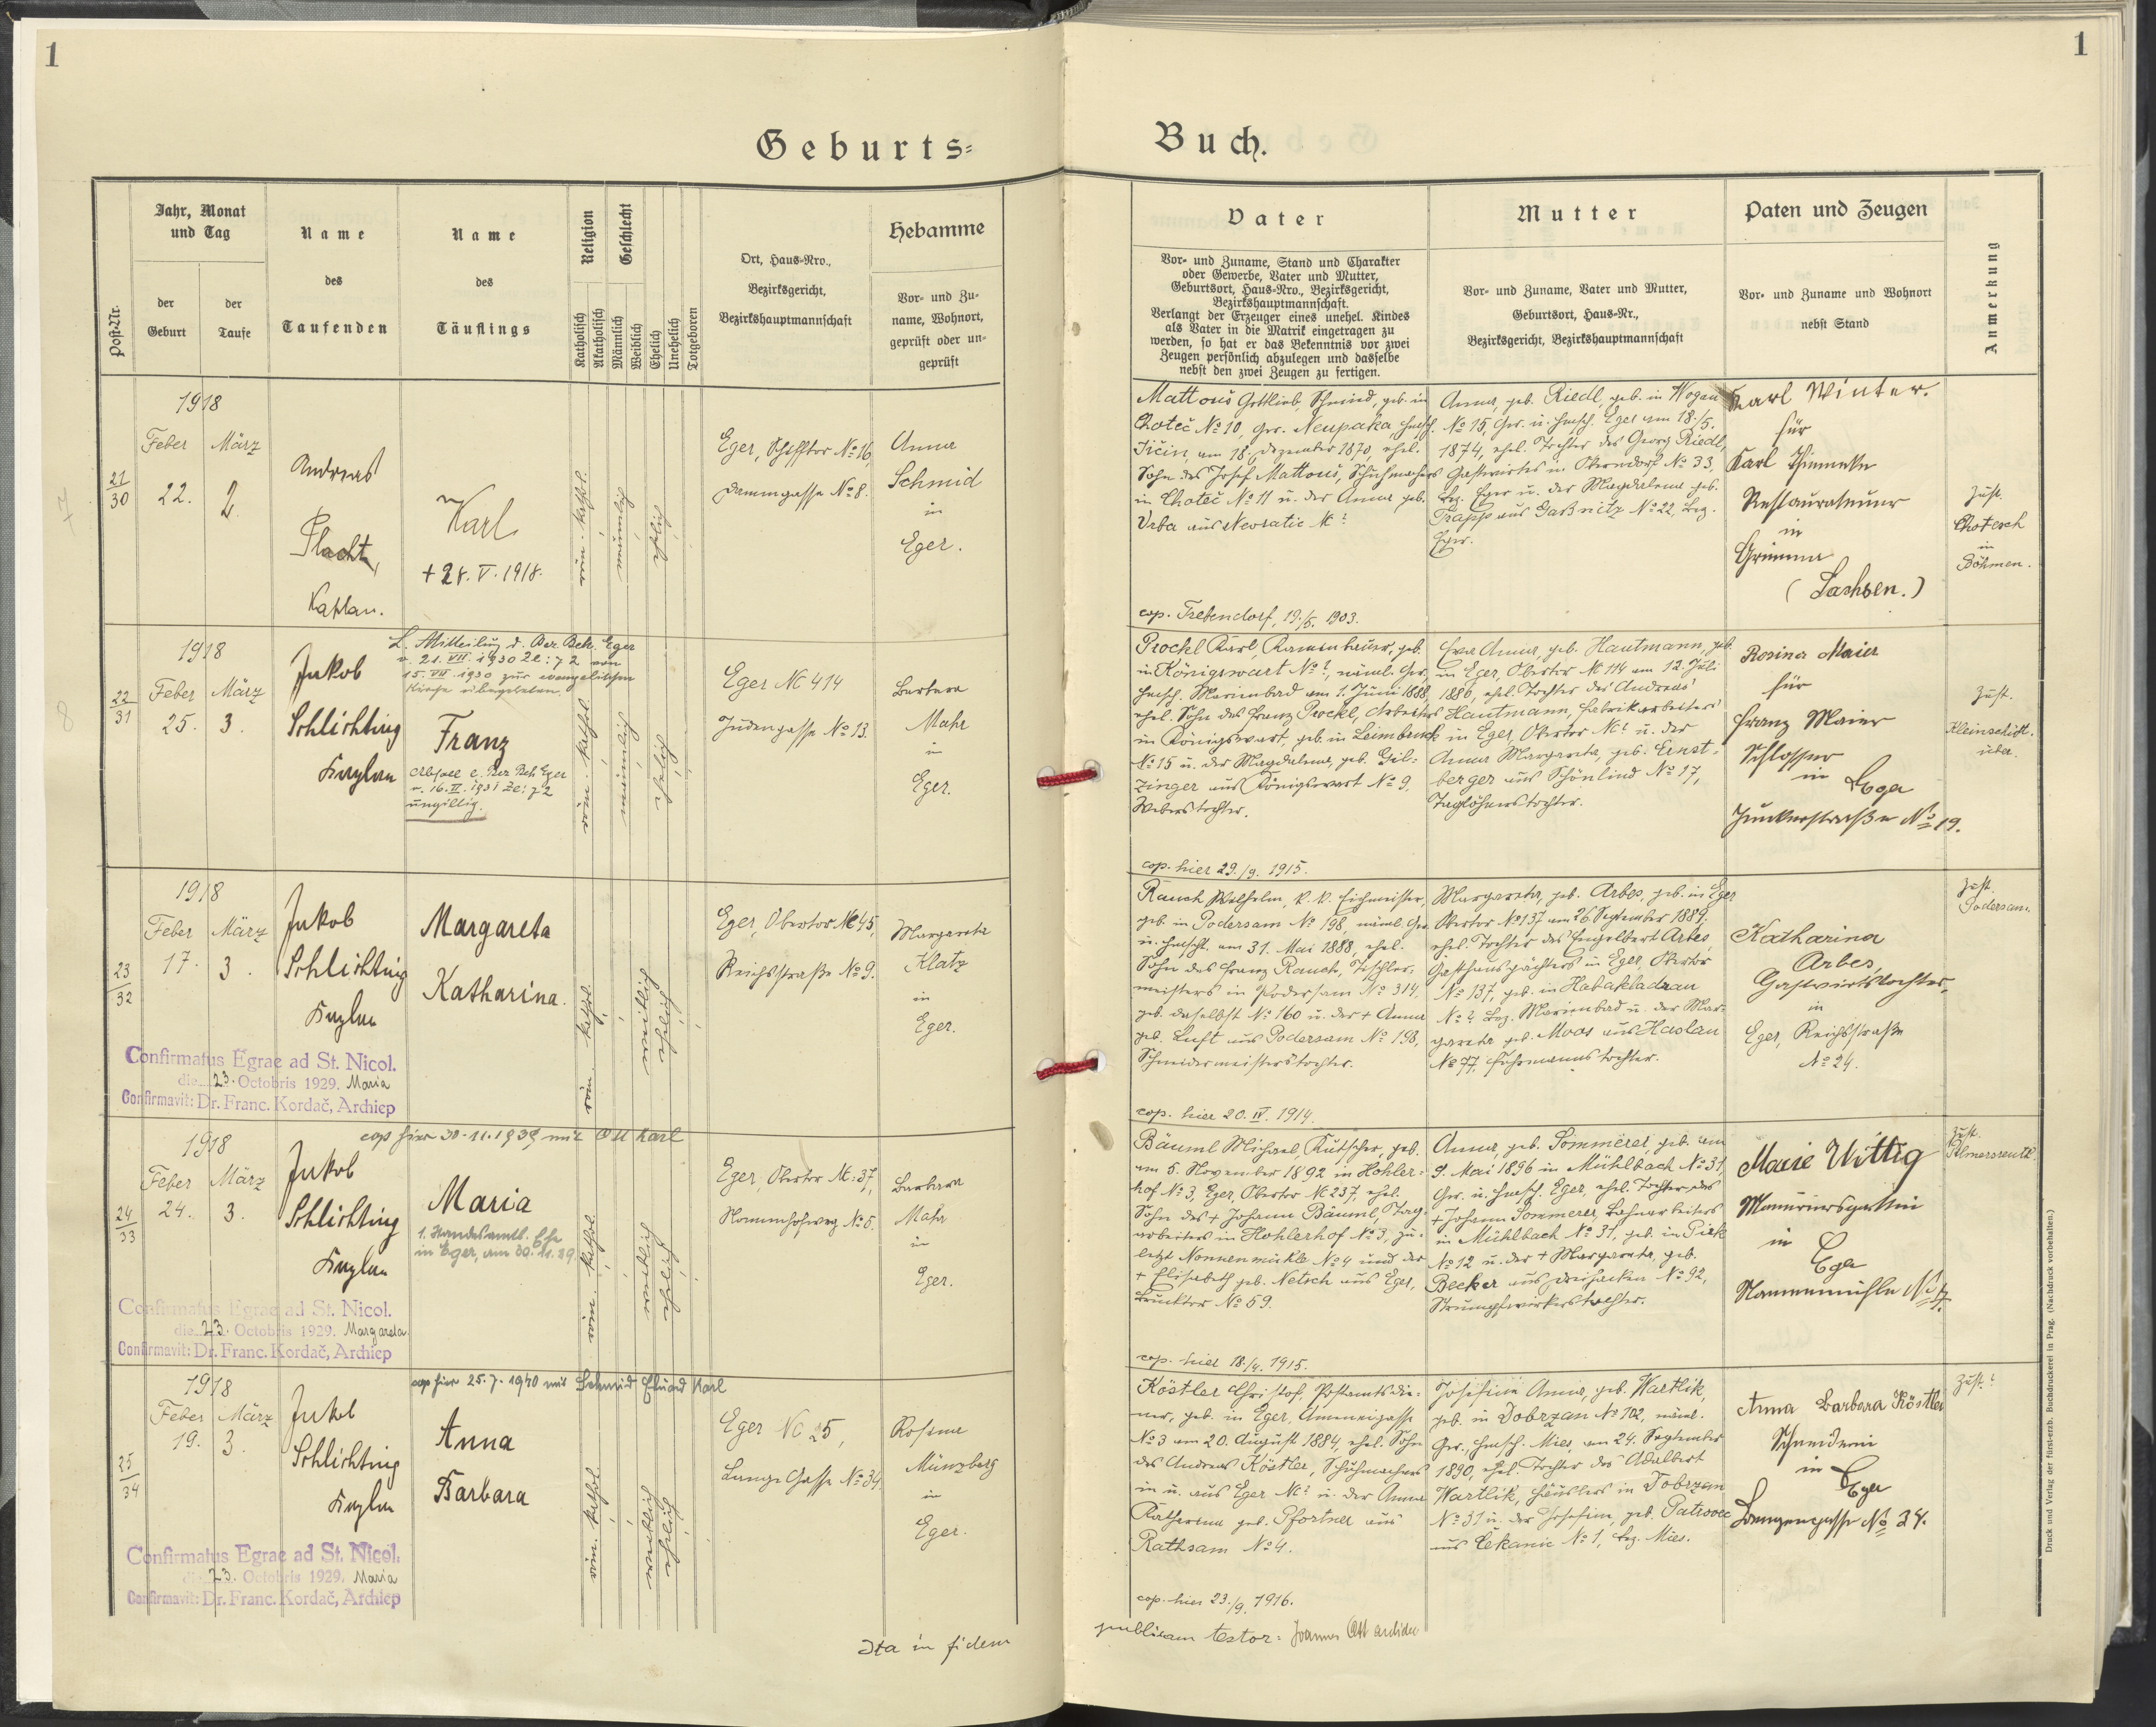 1
Geburts=
Post-Nr.
Jahr, Monat
und Tag
der
Geburt
der
Taufe
Name
des
Taufenden
Name
des
Täuflings
Religion
Katholisch
Akatholisch
Geschlecht
Männlich
Weiblich
Ehelich
Unehelich
Totgeboren
Ort, Haus-Nro.,
Bezirksgericht,
Bezirkshauptmannschaft
Hebamme
Vor- und Zu-
name, Wohnort,
geprüft oder un-
geprüft
21
30
1918
Feber März
22. 2.
Andreas
Placht,
Kaplan.
Karl
+ 28. V. 1918.
röm. kathol.
männlich
ehelich
Eger, Schifftor No 16,
Dammgasse No 8.
Anna
Schmid
in
Eger.
7
22
31
1918
Feber März
25. 3.
Jakob
Schlichting
Kaplan
L. Mitteilung d. Bez. Beh. Eger
v. 21. VII. 1930 Zl: 72 am
15. VII. 1930 zur evangelischen
Kirche übergetreten.
Franz
v. 16. II. 1931 Zl: 72
ungiltig.
röm. kathol.
männlich
ehelich
Eger No 414
Judengasse No 13.
Barbara
Mahr
in
Eger.
8
23
32
1918
Feber März
17. 3.
Jakob
Schlichting
Kaplan
Margareta
Katharina.
röm. kathol.
weiblich
ehelich
Eger, Obertor No 45,
Reichsstraße No 9.
Margareta
Klatz
in
Eger.
Confirmatus Egrae ad St. Nicol.
die 23. Octobris 1929. Maria
Confirmavit: Dr. Franc. Kordač, Archiep
24
33
1918
Feber März
24. 3.
cop hier 30.11.1939 mit Ott Karl
Jakob
Schlichting
Kaplan
Maria
1. Standesamtl. Ehe
in Eger, am 30.11.39
röm. kathol.
weiblich
ehelich
Eger, Obertor No: 37,
Nonnenhofweg No 5.
Barbara
Mahr
in
Eger.
Confirmatus Egrae ad St. Nicol.
die 23. Octobris 1929. Margareta
Confirmavit: Dr. Franc. Kordač, Archiep
25
34
1918
Feber März
19. 3.
cop hier 25.7.1940 mit Schmid Eduard Karl
Jakob
Schlichting
Kaplan
Anna
Barbara
röm. kathol.
weiblich
ehelich
Eger No 25,
Lange Gasse No 34.
Rosina
Münzberg
in
Eger.
Confirmatus Egrae ad St. Nicol.
die 23. Octobris 1929. Maria
Confirmavit: Dr. Franc. Kordač, Archiep
Ita in fidem
1
Buch.
Vater
Vor- und Zuname, Stand und Charakter
oder Gewerbe, Vater und Mutter,
Geburtsort, Haus-Nro., Bezirksgericht,
Bezirkshauptmannschaft.
Verlangt der Erzeuger eines unehel. Kindes
als Vater in die Matrik eingetragen zu
werden, so hat er das Bekenntnis vor zwei
Zeugen persönlich abzulegen und dasselbe
nebst den zwei Zeugen zu fertigen.
Mutter
Vor- und Zuname, Vater und Mutter,
Geburtsort, Haus-Nr.,
Bezirksgericht, Bezirkshauptmannschaft
Paten und Zeugen
Vor- und Zuname und Wohnort
nebst Stand
Anmerkung
Mattouš Gottlieb, Schmied, geb. in
Choteč No 10, Ger. Neupaka, Hmsch.
Jičin, am 18. Dezember 1870, ehel.
Sohn des Josef Mattouš, Schuhmachers
in Choteč No 11 u. der Anna geb.
Vrba aus Neoratic No ?
cop. Trebendorf, 19./5. 1903.
Anna, geb. Riedl, geb. in Wogau
No 15, Ger. u. Hmsch. Eger am 18./5.
1874, ehel. Tochter des Georg Riedl,
Gastwirtes in Oberndorf No 33,
Bez. Eger u. der Magdalena geb.
Trapp aus Gaßnitz No 22, Bez.
Eger.
Karl Winter.
für
Karl
Restaurateur
in
Grimma
(Sachsen.)
Zust.
Chotesch
in
Böhmen.
Prockl Karl, Kammerhauer, geb.
in Königswart No ?, näml. Ger.,
Hmsch. Marienbad am 1. Juni 1888,
ehel. Sohn des Franz Prockl, Arbeiters
in Königswart, geb. in Leimbruck
No 15 u. der Magdalena, geb. Gil-
zinger aus Königswart No 9,
Weberstochter.
cop. hier 29./9. 1915.
Eva Anna, geb. Hautmann, geb.
in Eger, Obertor No 114 am 12. Juli
1886, ehel. Tochter des Andreas
Hautmann, Fabrikarbeiters
in Eger, Obertor No ? u. der
Anna Margareta, geb. Ernst-
berger aus Schönlind No 17,
Taglöhnerstochter.
Rosina Maier
für
Franz Maier
Schlosser
in
Eger
Junkerstraße No 19.
Zust.
Kleinschüt-
über.
Rauch Wilhelm, k. k. Eichmeister,
geb. in Podersam No 198, näml. Ger.
u. Hmscht. am 31. Mai 1888, ehel.
Sohn des Franz Rauch, Tischler-
meisters in Podersam No 314,
geb. daselbst No 160 u. der + Anna
geb. Luft aus Podersam No 198,
Schneidermeisterstochter.
cop. hier 20. IV. 1914.
Margareta, geb. Arbes, geb. in Eger
Obertor No 137 am 26. September 1889,
ehel. Tochter des Engelbert Arbes,
Gasthauspächters in Eger, Obertor
No 137, geb. in Habakladrau
No ? Bez. Marienbad u. der Mar-
gareta geb. Moos aus Haslau
No 77, Fuhrmannstochter.
Katharina
Arbes,
Gastwirtstochter,
in
Eger, Reichsstraße
No 24.
Zust.
Podersam.
Bäuml Michael, Kutscher, geb.
am 5. November 1892 in Hohler-
hof No 3, Eger, Obertor No 237, ehel.
Sohn des + Johann Bäuml, Tag-
arbeiters in Hohlerhof No 3, zu-
letzt Nonnenmühle No 4 und der
+ Elisabeth geb. Netsch aus Eger,
Brucktor No 59.
cop. hier 18./4. 1915.
Anna, geb. Sommerer, geb. am
9. Mai 1896 in Mühlbach No 31,
Ger. u. Hmsch. Eger, ehel. Tochter des
+ Johann Sommerer, Bahnarbeiters
in Mühlbach No 31, geb. in Pirk
No 12 u. der + Margareta, geb.
Becker aus Dreihacken No 92,
Strumpfwirkerstochter.
Marie Wittig
Maurersgattin
in
Eger
Nonnenmühle No 4.
Zust.
Palmersreuth.
Köstler Christof, Postamtsdie-
ner, geb. in Eger, Ameneigasse
No 3 am 20. August 1884, ehel. Sohn
des Andreas Köstler, Schuhmachers
in u. aus Eger No ? u. der Anna
Katharina geb. Pfortner aus
Rathsam No 4.
cop. hier 23./9. 1916.
Josefine Anna, geb. Wartlik,
geb. in Dobrzan No 102, näml.
Ger., Hmsch. Mies, am 24. September
1890, ehel. Tochter des Adalbert
Wartlik, Häuslers in Dobrzan
No 31 u. der Josefina, geb. Patrovec
aus Čekanic No 1, Bez. Mies.
Anna Barbara Köstler
Schneiderin
in
Eger
Langegasse No 34.
Zust. ?
publicam testor: Joannes Ott archidec
Druck und Verlag der fürst-erzb. Buchdruckerei in Prag. (Nachdruck vorbehalten.)